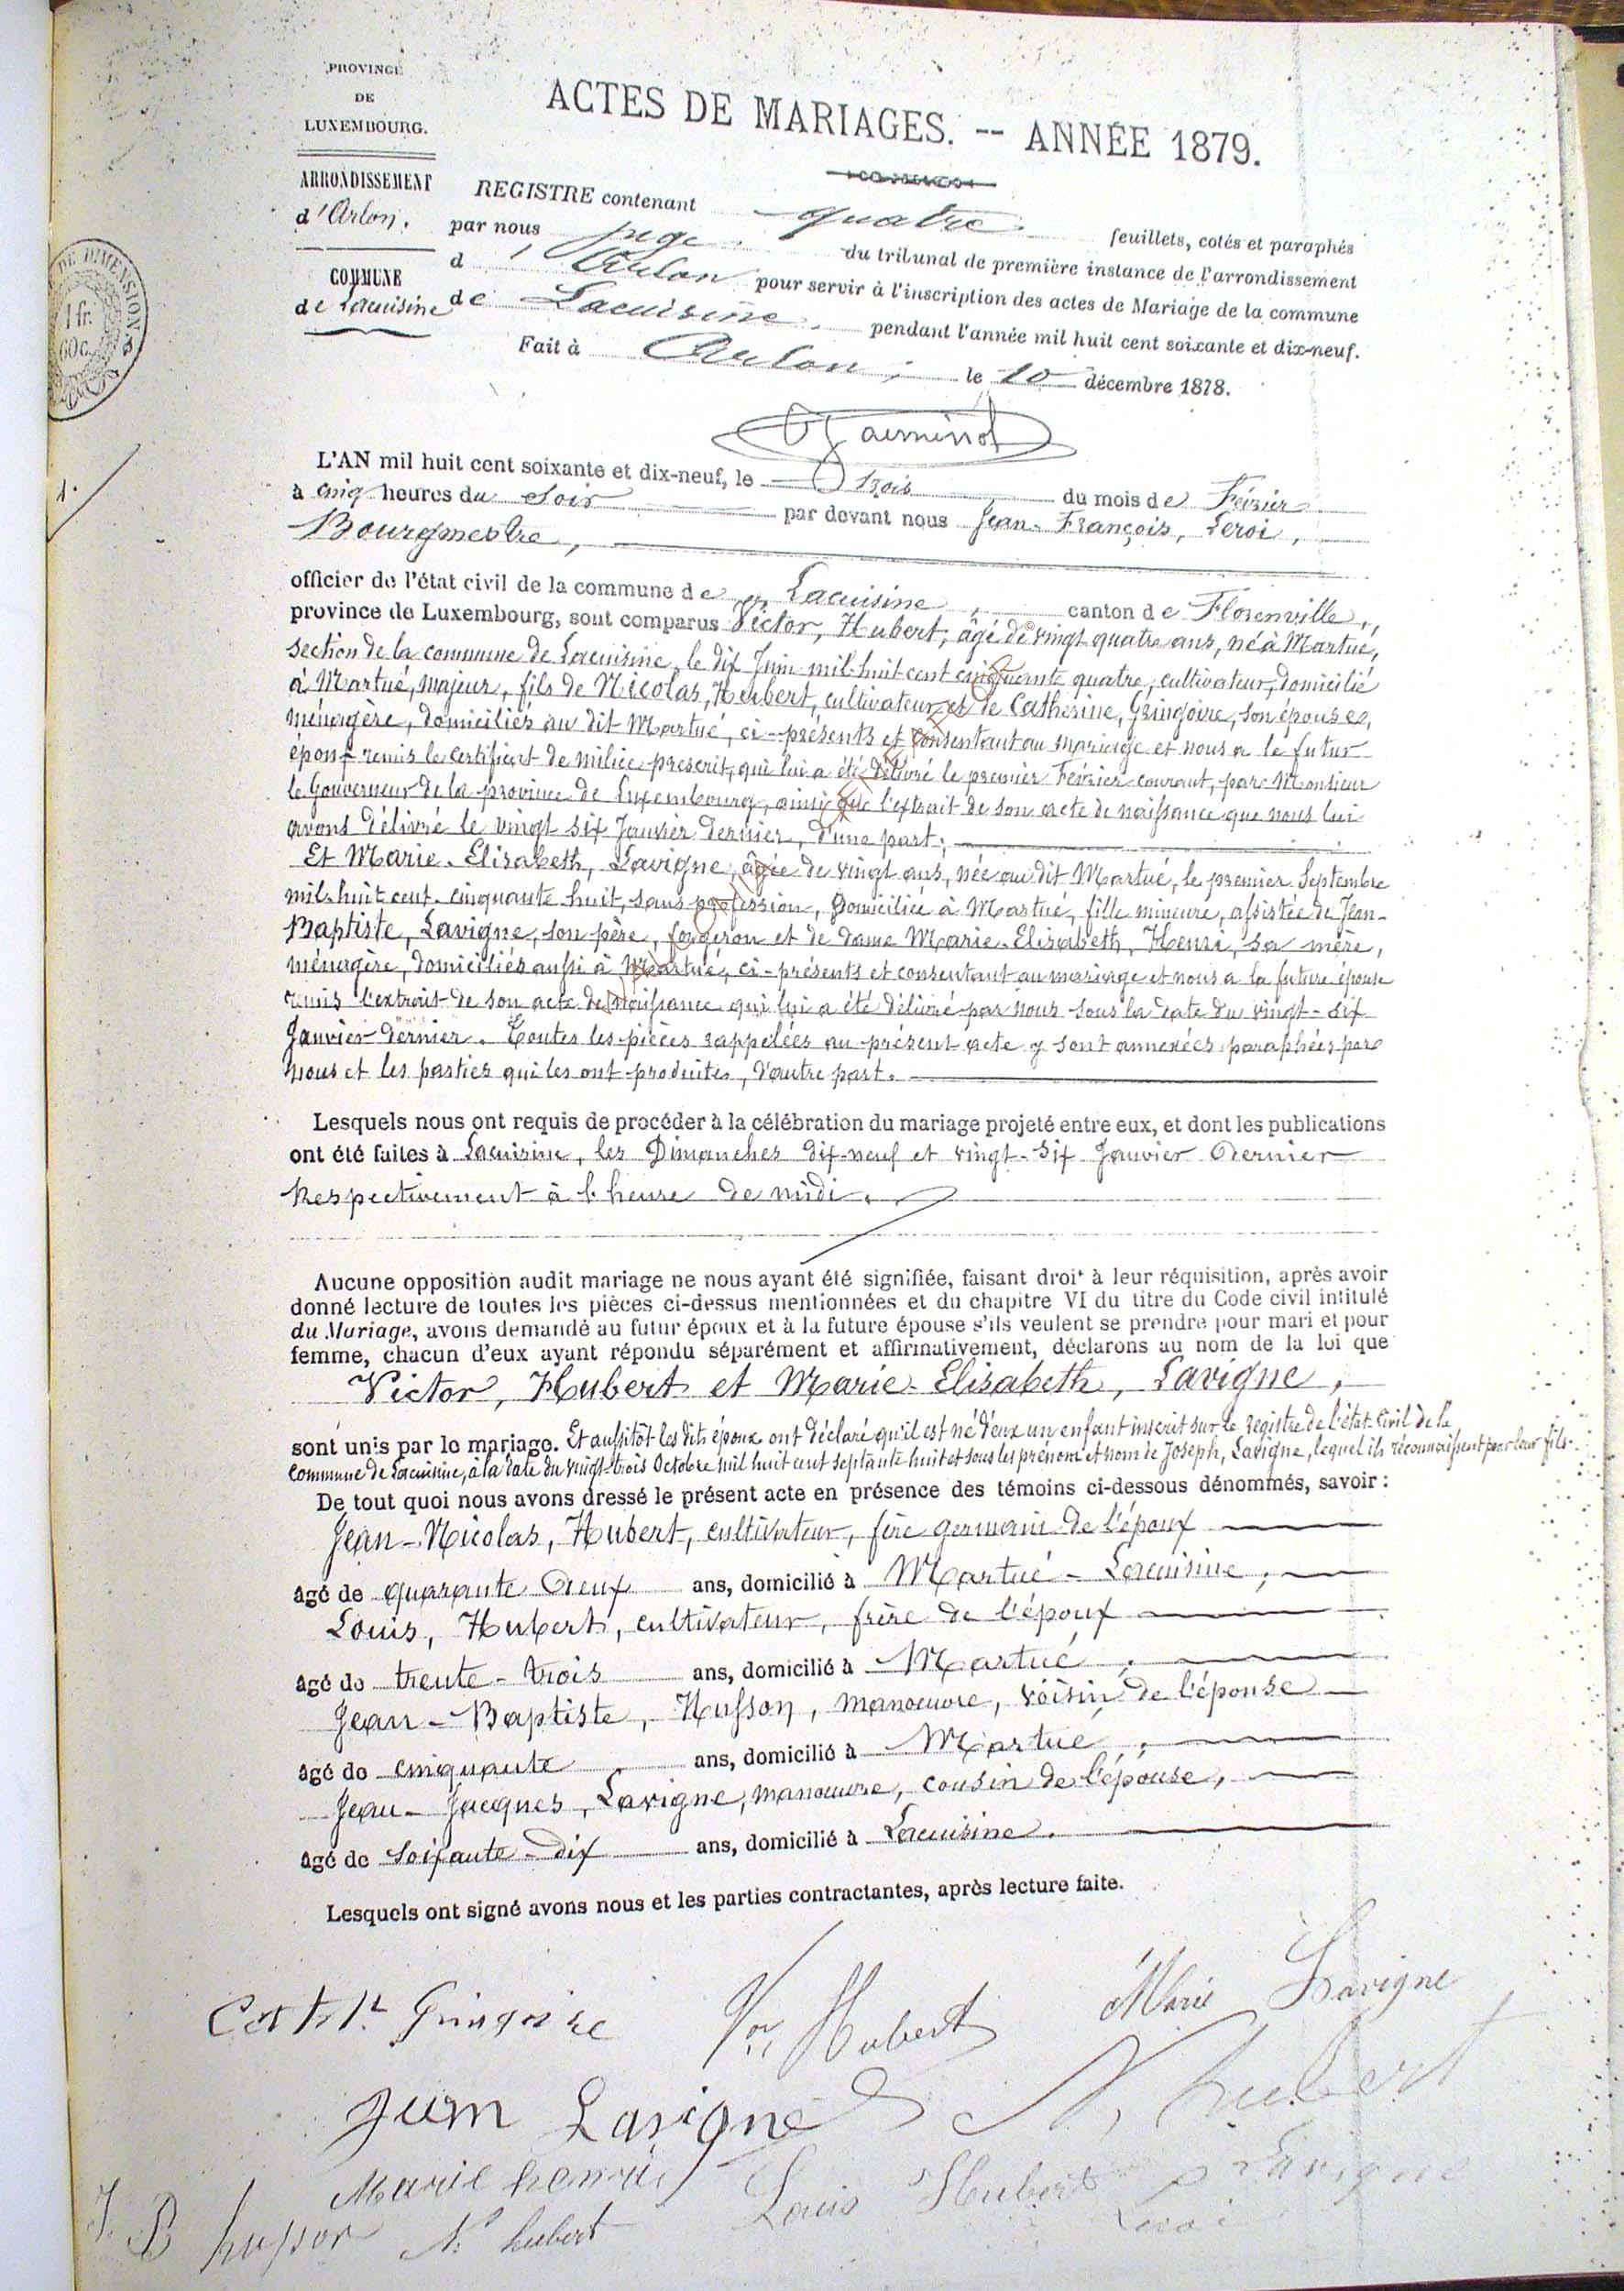 PROVINCE
DE
LUXEMBOURG.
ARRONDISSEMENT
d'Arlon.
COMMUNE
de Lacuisine
DE DIMENSION
1 fr.
60 c.
1.
ACTES DE MARIAGES. -- ANNÉE 1879.
REGISTRE contenant quatre feuillets, cotés et paraphés
par nous juge du tribunal de première instance de l'arrondissement
d'Arlon pour servir à l'inscription des actes de Mariage de la commune
de Lacuisine, pendant l'année mil huit cent soixante et dix-neuf.
Fait à Arlon, le 10 décembre 1878.
L'AN mil huit cent soixante et dix-neuf, le trois du mois de Février
à cinq heures du soir par devant nous Jean-François, Leroi,
Bourgmestre,
officier de l'état civil de la commune de Lacuisine, canton de Florenville,
province de Luxembourg, sont comparus Victor, Hubert, âgé de vingt quatre ans, né à Martué,
section de la commune de Lacuisine, le dix Juin mil-huit cent cinquante quatre, cultivateur, domicilié
à Martué, majeur, fils de Nicolas, Hubert, cultivateur et de Catherine, Gringoire, son épouse,
ménagère, domiciliés au dit Martué, ci-présents et consentant au mariage et nous a le futur
époux remis le certificat de milice prescrit, qui lui a été délivré le premier Février courant, par Monsieur
le Gouverneur de la province de Luxembourg, ainsi que l'extrait de son acte de naissance que nous lui
avons délivré le vingt six Janvier dernier, d'une part;
Et Marie-Elisabeth, Lavigne, âgée de vingt ans, née au dit Martué, le premier Septembre
mil-huit cent-cinquante huit, sans profession, domiciliée à Martué, fille mineure, assistée de Jean-
Baptiste, Lavigne, son père, forgeron et de dame Marie-Elisabeth, Henri, sa mère,
ménagère, domiciliés aussi à Martué, ci-présents et consentant au mariage et nous a la future épouse
remis l'extrait de son acte de naissance qui lui a été délivré par nous sous la date du vingt-six
Janvier dernier. Toutes les pièces rappelées au présent acte y sont annexées paraphées par
nous et les parties qui les ont produites, d'autre part.
Lesquels nous ont requis de procéder à la célébration du mariage projeté entre eux, et dont les publications
ont été faites à Lacuisine, les Dimanches dix-neuf et vingt-six Janvier dernier
respectivement à l'heure de midi.
Aucune opposition audit mariage ne nous ayant été signifiée, faisant droit à leur réquisition, après avoir
donné lecture de toutes les pièces ci-dessus mentionnées et du chapitre VI du titre du Code civil intitulé
du Mariage, avons demandé au futur époux et à la future épouse s'ils veulent se prendre pour mari et pour
femme, chacun d'eux ayant répondu séparément et affirmativement, déclarons au nom de la loi que
Victor, Hubert et Marie-Elisabeth, Lavigne,
sont unis par le mariage. Et aussitôt les dits époux ont déclaré qu'il est né d'eux un enfant inscrit sur le registre de l'état-Civil de la
commune de Lacuisine, à la date du vingt-trois Octobre mil huit cent septante huit et sous les prénom et nom de Joseph, Lavigne, lequel ils reconnaissent pour leur fils.
De tout quoi nous avons dressé le présent acte en présence des témoins ci-dessous dénommés, savoir :
Jean-Nicolas, Hubert, cultivateur, fère germain de l'époux
âgé de quarante deux ans, domicilié à Martué-Lacuisine,
Louis, Hubert, cultivateur, frère de l'époux
âgé de trente-trois ans, domicilié à Martué,
Jean-Baptiste, Husson, manoeuvre, voisin de l'épouse
âgé de cinquante ans, domicilié à Martué,
Jean-Jacques, Lavigne, manoeuvre, cousin de l'épouse,
âgé de soixante-dix ans, domicilié à Lacuisine.
Lesquels ont signé avons nous et les parties contractantes, après lecture faite.
Gringoire Hubert Marie Lavigne
Lavigne N. hubert
Marie henri Louis Hubert Lavigne
J. B husson N. hubert Leroi